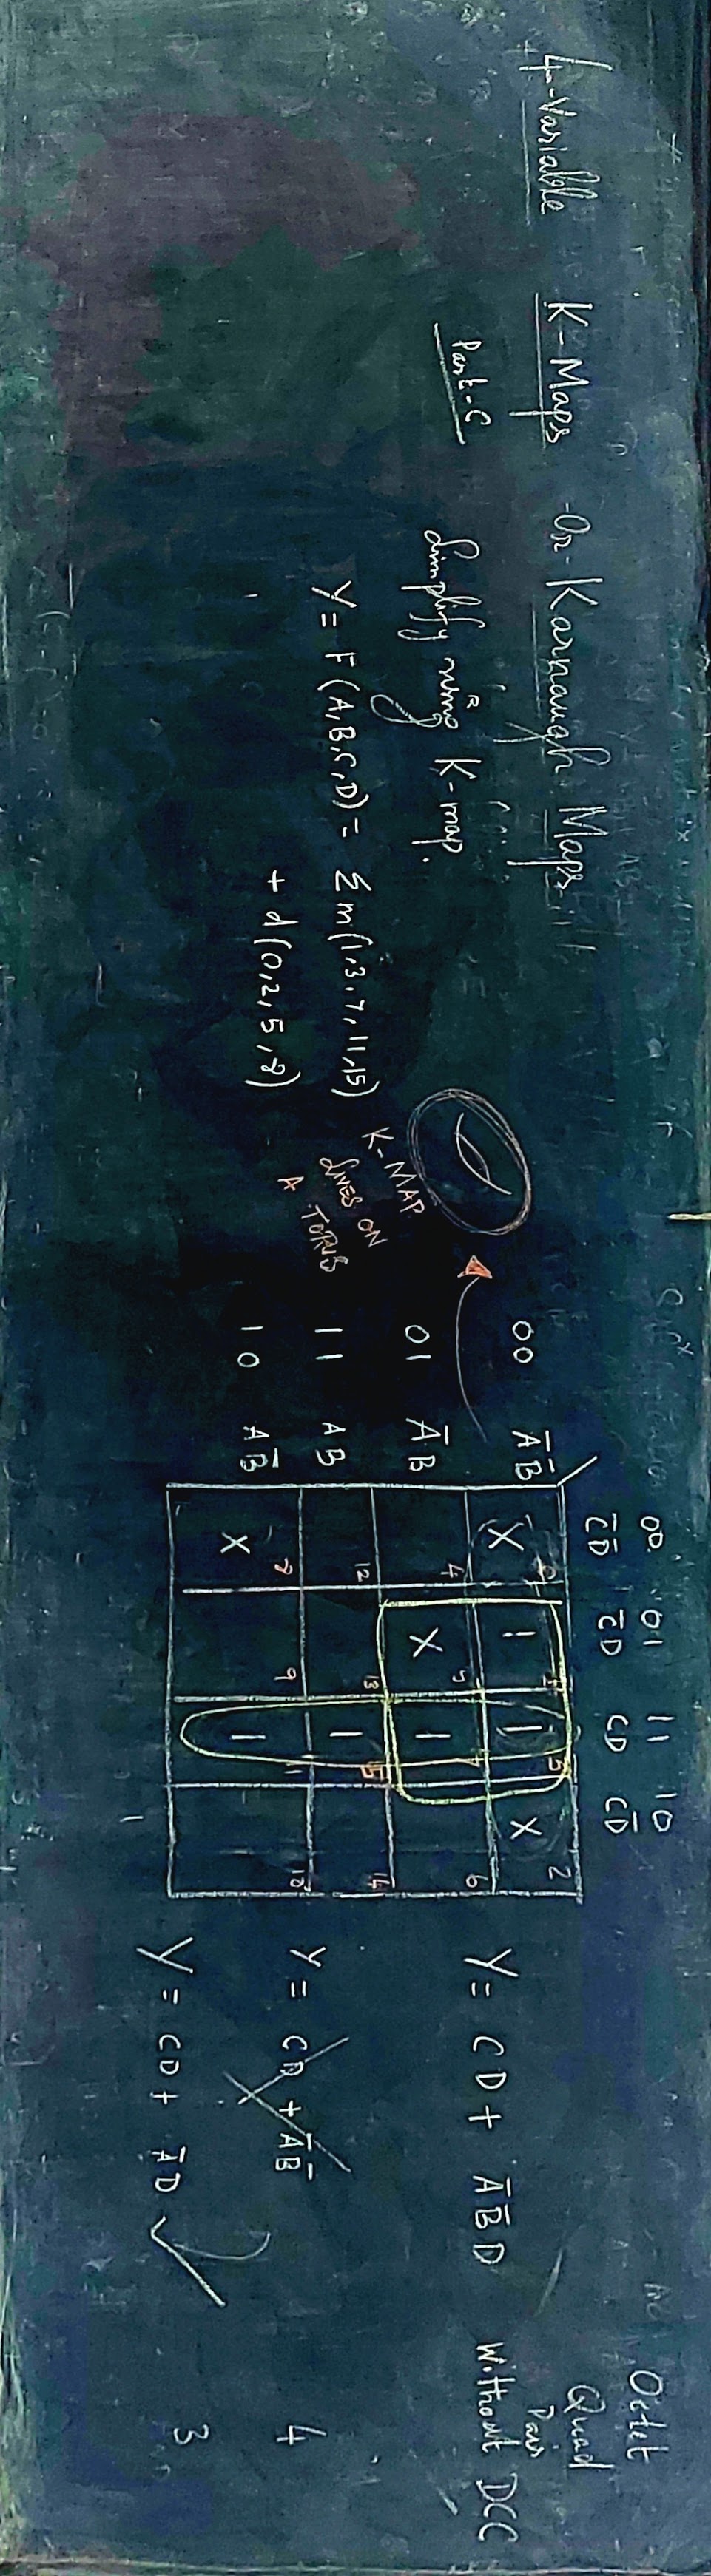 4-Variable K-Maps -Or- Karnaugh Maps
Part-C
Simplify using K-map.
Y = F(A,B,C,D) = Σm(1,3,7,11,15)
+ d(0,2,5,8)
K-MAP
LIVES ON
A TORUS
00 01 11 10
C̅D̅ C̅D CD CD̅
00 A̅B̅ X 0 1 1 1 3 X 2
01 A̅B 4 X 5 1 6
11 AB 12 13 1 15 14
10 AB̅ X 8 9 1 11 10
Y = CD + A̅B̅D
Y = CD + A̅B̅
Y = CD + A̅D
Octet
Quad
Pair
Without DCC
4
3